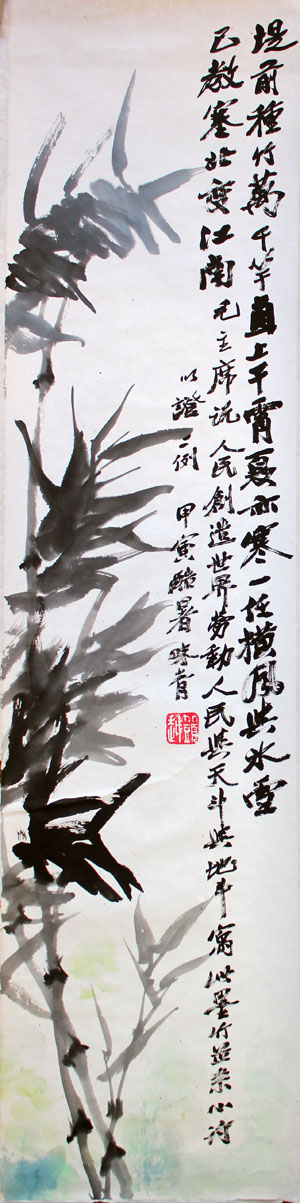 堤前種竹萬千竿直上干霄夏亦寒一任横风與冰雪
已教塞北變江南毛主席说人民創造世界劳動人民與天斗與地斗寫此墨竹並系小诗
以證一例甲寅酷暑